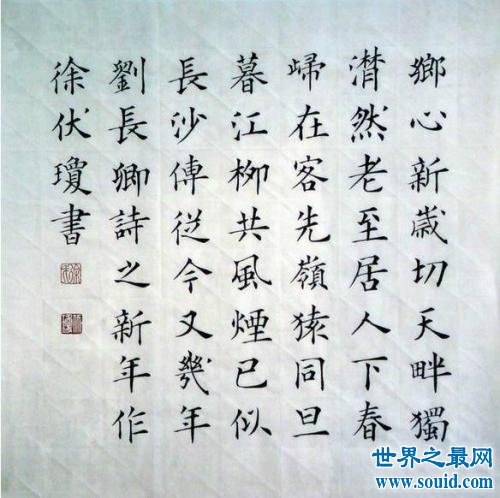 鄉心新歲切天畔獨
潸然老至居人下春
歸在客先嶺猿同旦
暮江柳共風煙已似
長沙傅從今又幾年
劉長卿詩之新年作
徐伏瓊書
世界之最网
www.souid.com